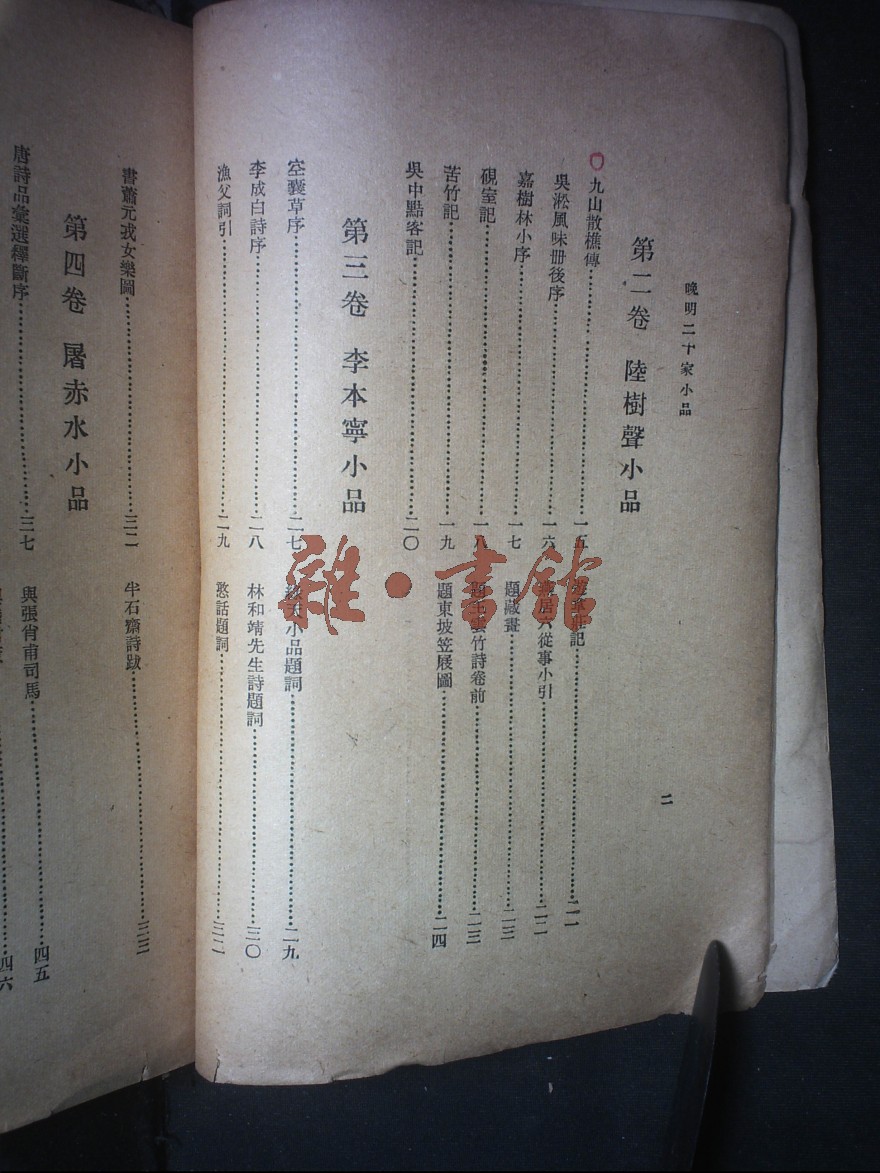 晚明二十家小品
二
第二卷 陸樹聲小品
九山散樵傳……一五
吳淞風味冊後序……一六
嘉樹林小序……一七
硯室記……一八
苦竹記……一九
吳中點客記……二〇
莊記……二一
居六從事小引……二二
題藏畫……二三
雲竹詩卷前……二三
題東坡笠屐圖……二四
第三卷 李本寧小品
空襲草序……二七
李成白詩序……二八
漁父詞引……二九
小品題詞……二九
林和靖先生詩題詞……三〇
憨話題詞……三二
書蕭元戎女樂圖……三二
半石齋詩跋……三三
第四卷 屠赤水小品
唐詩品彙選釋斷序……三七
與張肖甫司馬……四五
四六
雜·書館